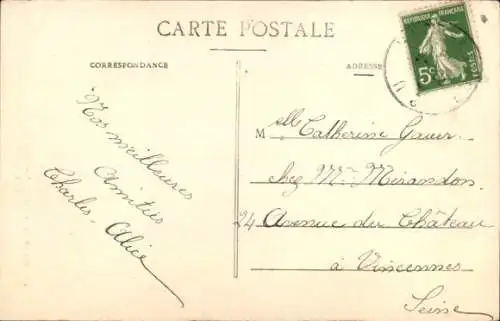 CARTE POSTALE
CORRESPONDANCE
ADRESSE
REPUBLIQUE FRANÇAISE
5c
POSTES
Nos meilleures
Amitiés
Charles. Alice
Melle Catherine Gauer
chez Mr Mirandon
24 Avenue du Château
à Vincennes
Seine